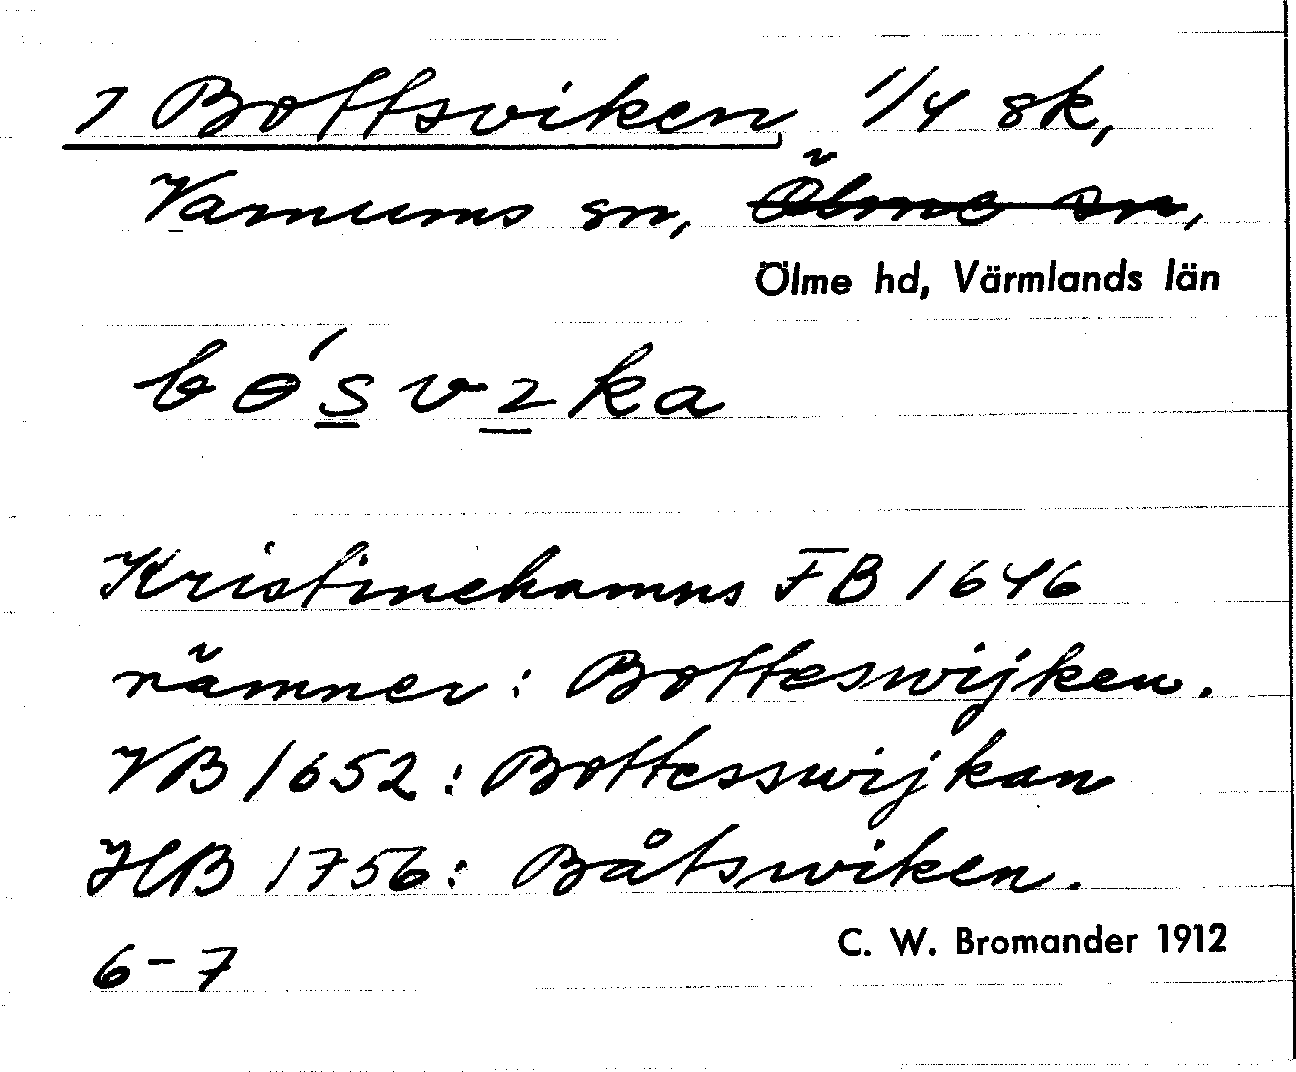 7 Bottsviken, 1/4 sk,
Varnums sn, Ölme sn,
Ölme hd, Värmlands län
bɵ́svıka
Kristinehamns FB 1646
nämner: Botteswijken.
VB 1652: Bottesswijkan
HB 1756: Båtswiken.
C. W. Bromander 1912
6-7